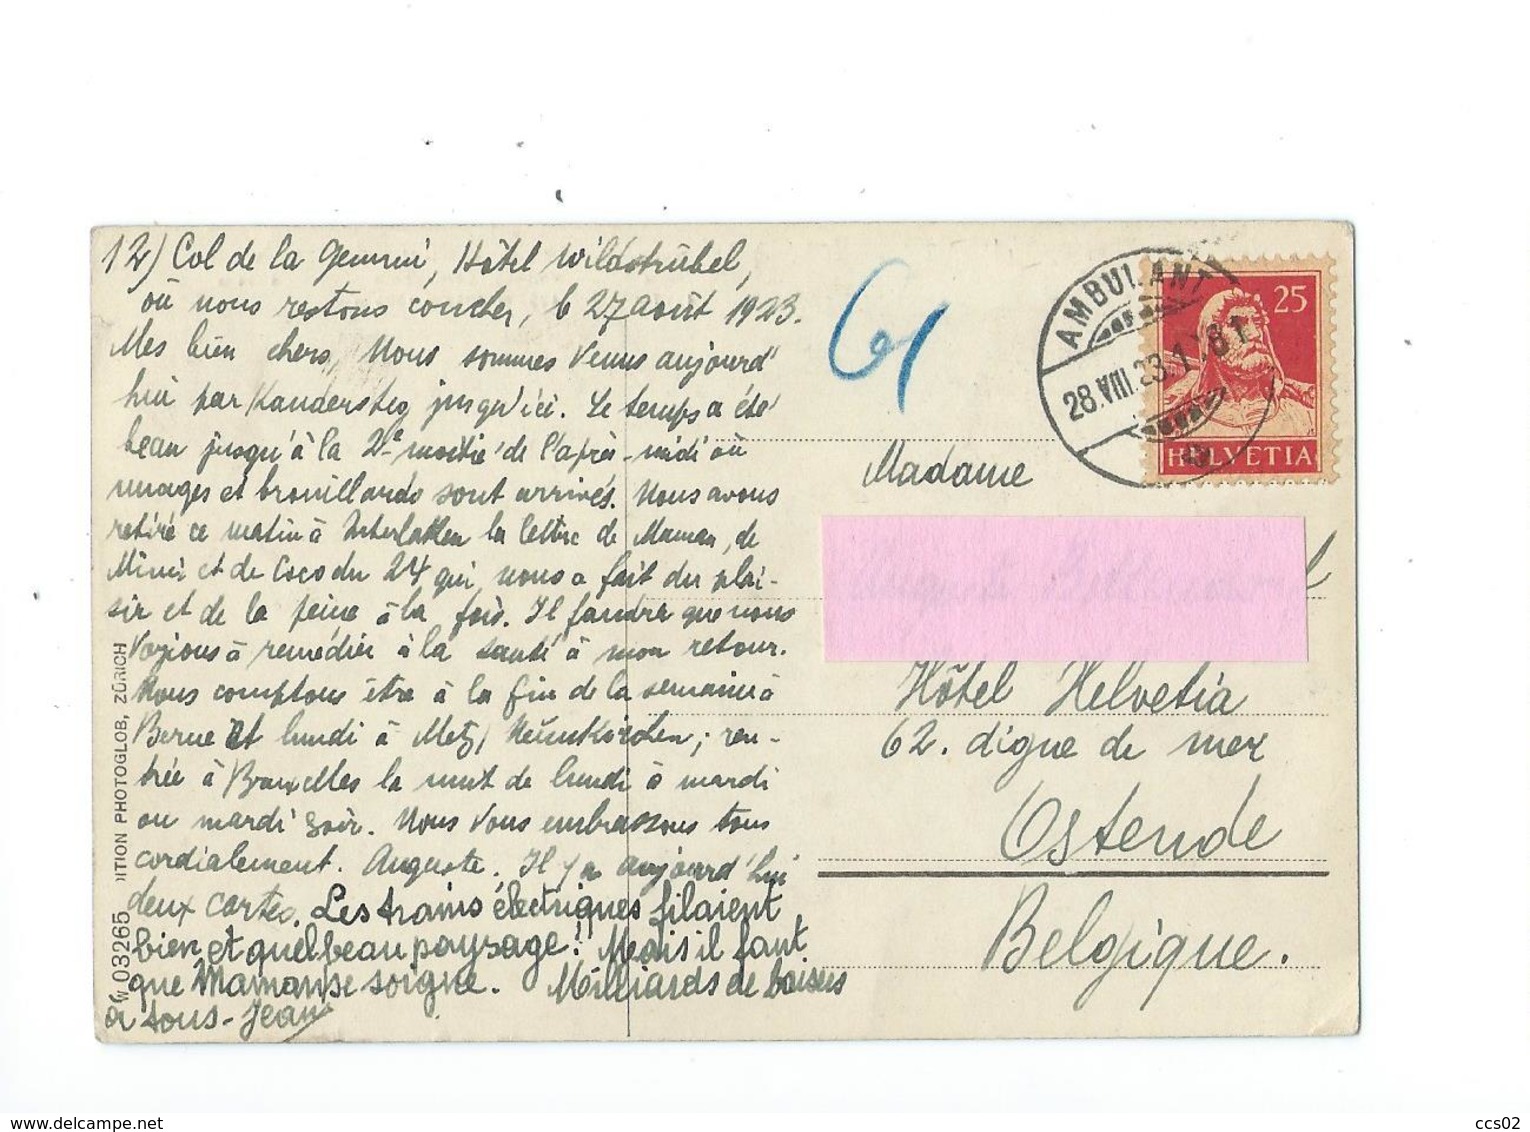 12) Col de la Gemmi, Hôtel Wildstrübel,
où nous restons coucher, le 27 août 1923.
Mes bien chers, Nous sommes venus aujourd'
hui par Kandersteg jusqu'ici. Le temps a été
beau jusqu'à la 2e moitié de l'après-midi où
nuages et brouillards sont arrivés. Nous avons
retiré ce matin à Interlaken la lettre de Maman, de
Mimi et de Coco du 24 qui nous a fait du plai-
sir et de la peine à la fois. Il faudra que nous
voyions à remédier à la santé à mon retour.
Nous comptons être à la fin de la semaine à
Berne et lundi à Metz, Neunkirchen; ren-
trée à Bruxelles la nuit de lundi à mardi
ou mardi soir. Nous vous embrassons tous
cordialement. Auguste. Il y a aujourd'hui
deux cartes. Les trams électriques filaient
bien et quel beau paysage! Mais il faut
que Maman se soigne. Milliards de baisers
à tous - Jean
W 03265 ITION PHOTOGLOB, ZÜRICH
AMBULANT
28.VIII.23
25
HELVETIA
Madame
Hôtel Helvetia
62. digue de mer
Ostende
Belgique.
delcampe.net
ccs02